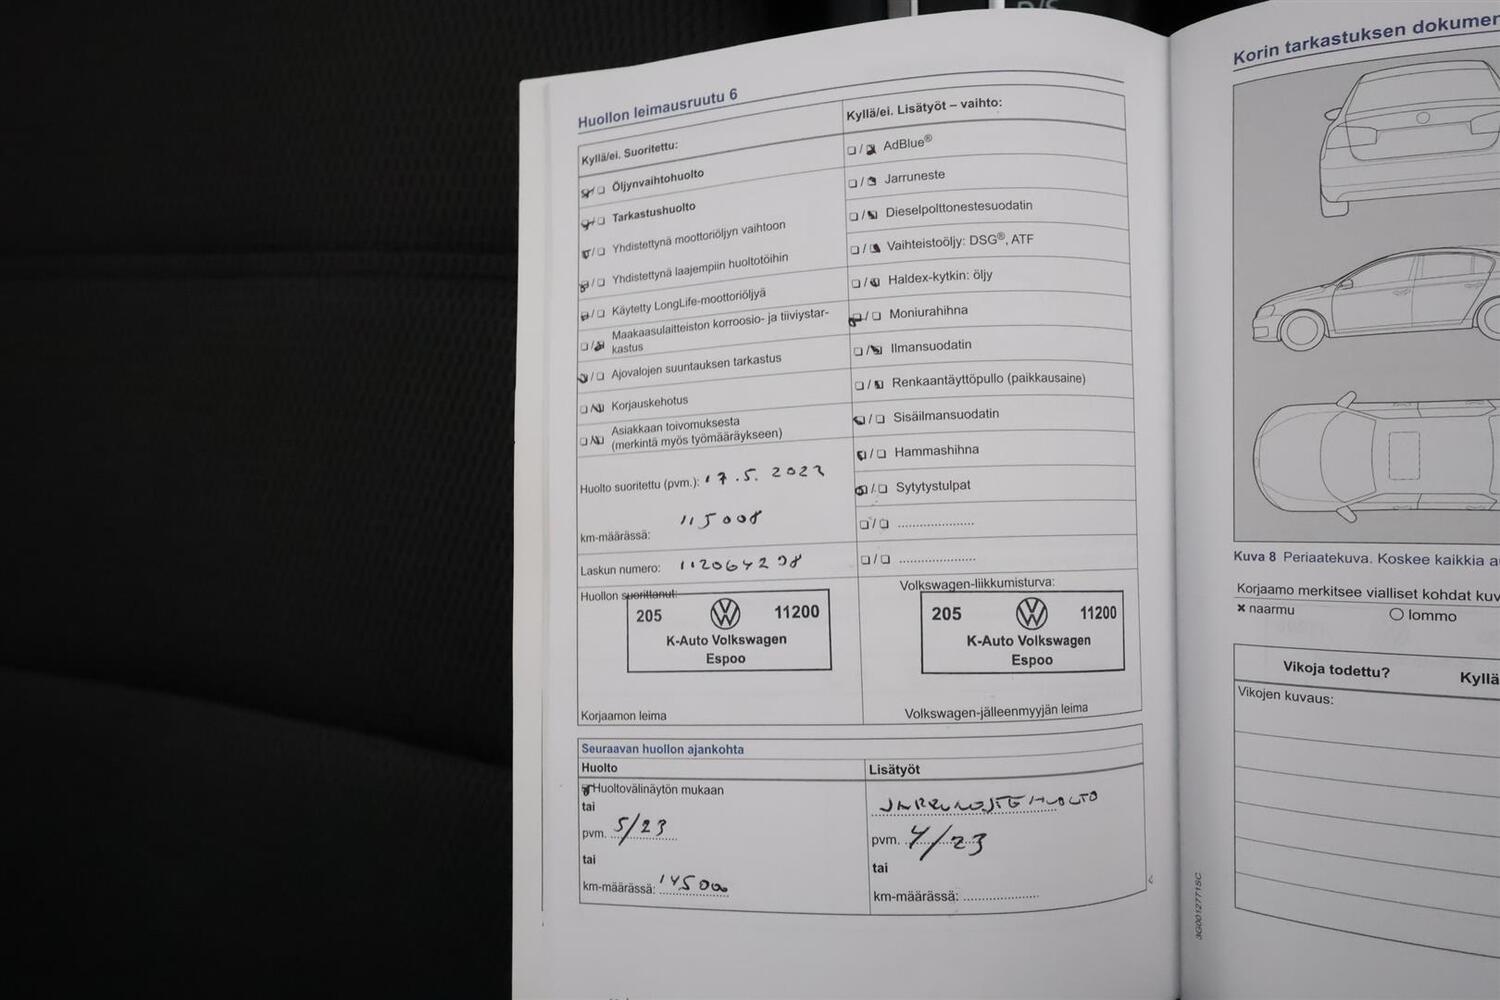 Huollon leimausruutu 6
Kyllä/ei. Suoritettu:
Öljynvaihtohuolto
Tarkastushuolto
Yhdistettynä moottoriöljyn vaihtoon
Yhdistettynä laajempiin huoltotöihin
Käytetty LongLife-moottoriöljyä
Maakaasulaitteiston korroosio- ja tiiviystar-
kastus
Ajovalojen suuntauksen tarkastus
Korjauskehotus
Asiakkaan toivomuksesta
(merkintä myös työmääräykseen)
Huolto suoritettu (pvm.): 17.5.2022
km-määrässä: 115008
Laskun numero:
Huollon suorittanut:
205 11200
K-Auto Volkswagen
Espoo
Korjaamon leima
Kyllä/ei. Lisätyöt – vaihto:
AdBlue®
Jarruneste
Dieselpolttonestesuodatin
Vaihteistoöljy: DSG®, ATF
Haldex-kytkin: öljy
Moniurahihna
Ilmansuodatin
Renkaantäyttöpullo (paikkausaine)
Sisäilmansuodatin
Hammashihna
Sytytystulpat
Volkswagen-liikkumisturva:
205 11200
K-Auto Volkswagen
Espoo
Volkswagen-jälleenmyyjän leima
Seuraavan huollon ajankohta
Huolto
Huoltovälinäytön mukaan
tai
pvm. 5/23
tai
km-määrässä: 14500
Lisätyöt
JARRUNESTEHUOLTO
pvm. 4/23
tai
km-määrässä:
Korin tarkastuksen
Kuva 8 Periaatekuva. Koskee kaikkia
Korjaamo merkitsee vialliset kohdat
× naarmu
lommo
Vikoja todettu?
Kyllä
Vikojen kuvaus:
3G0012771SC